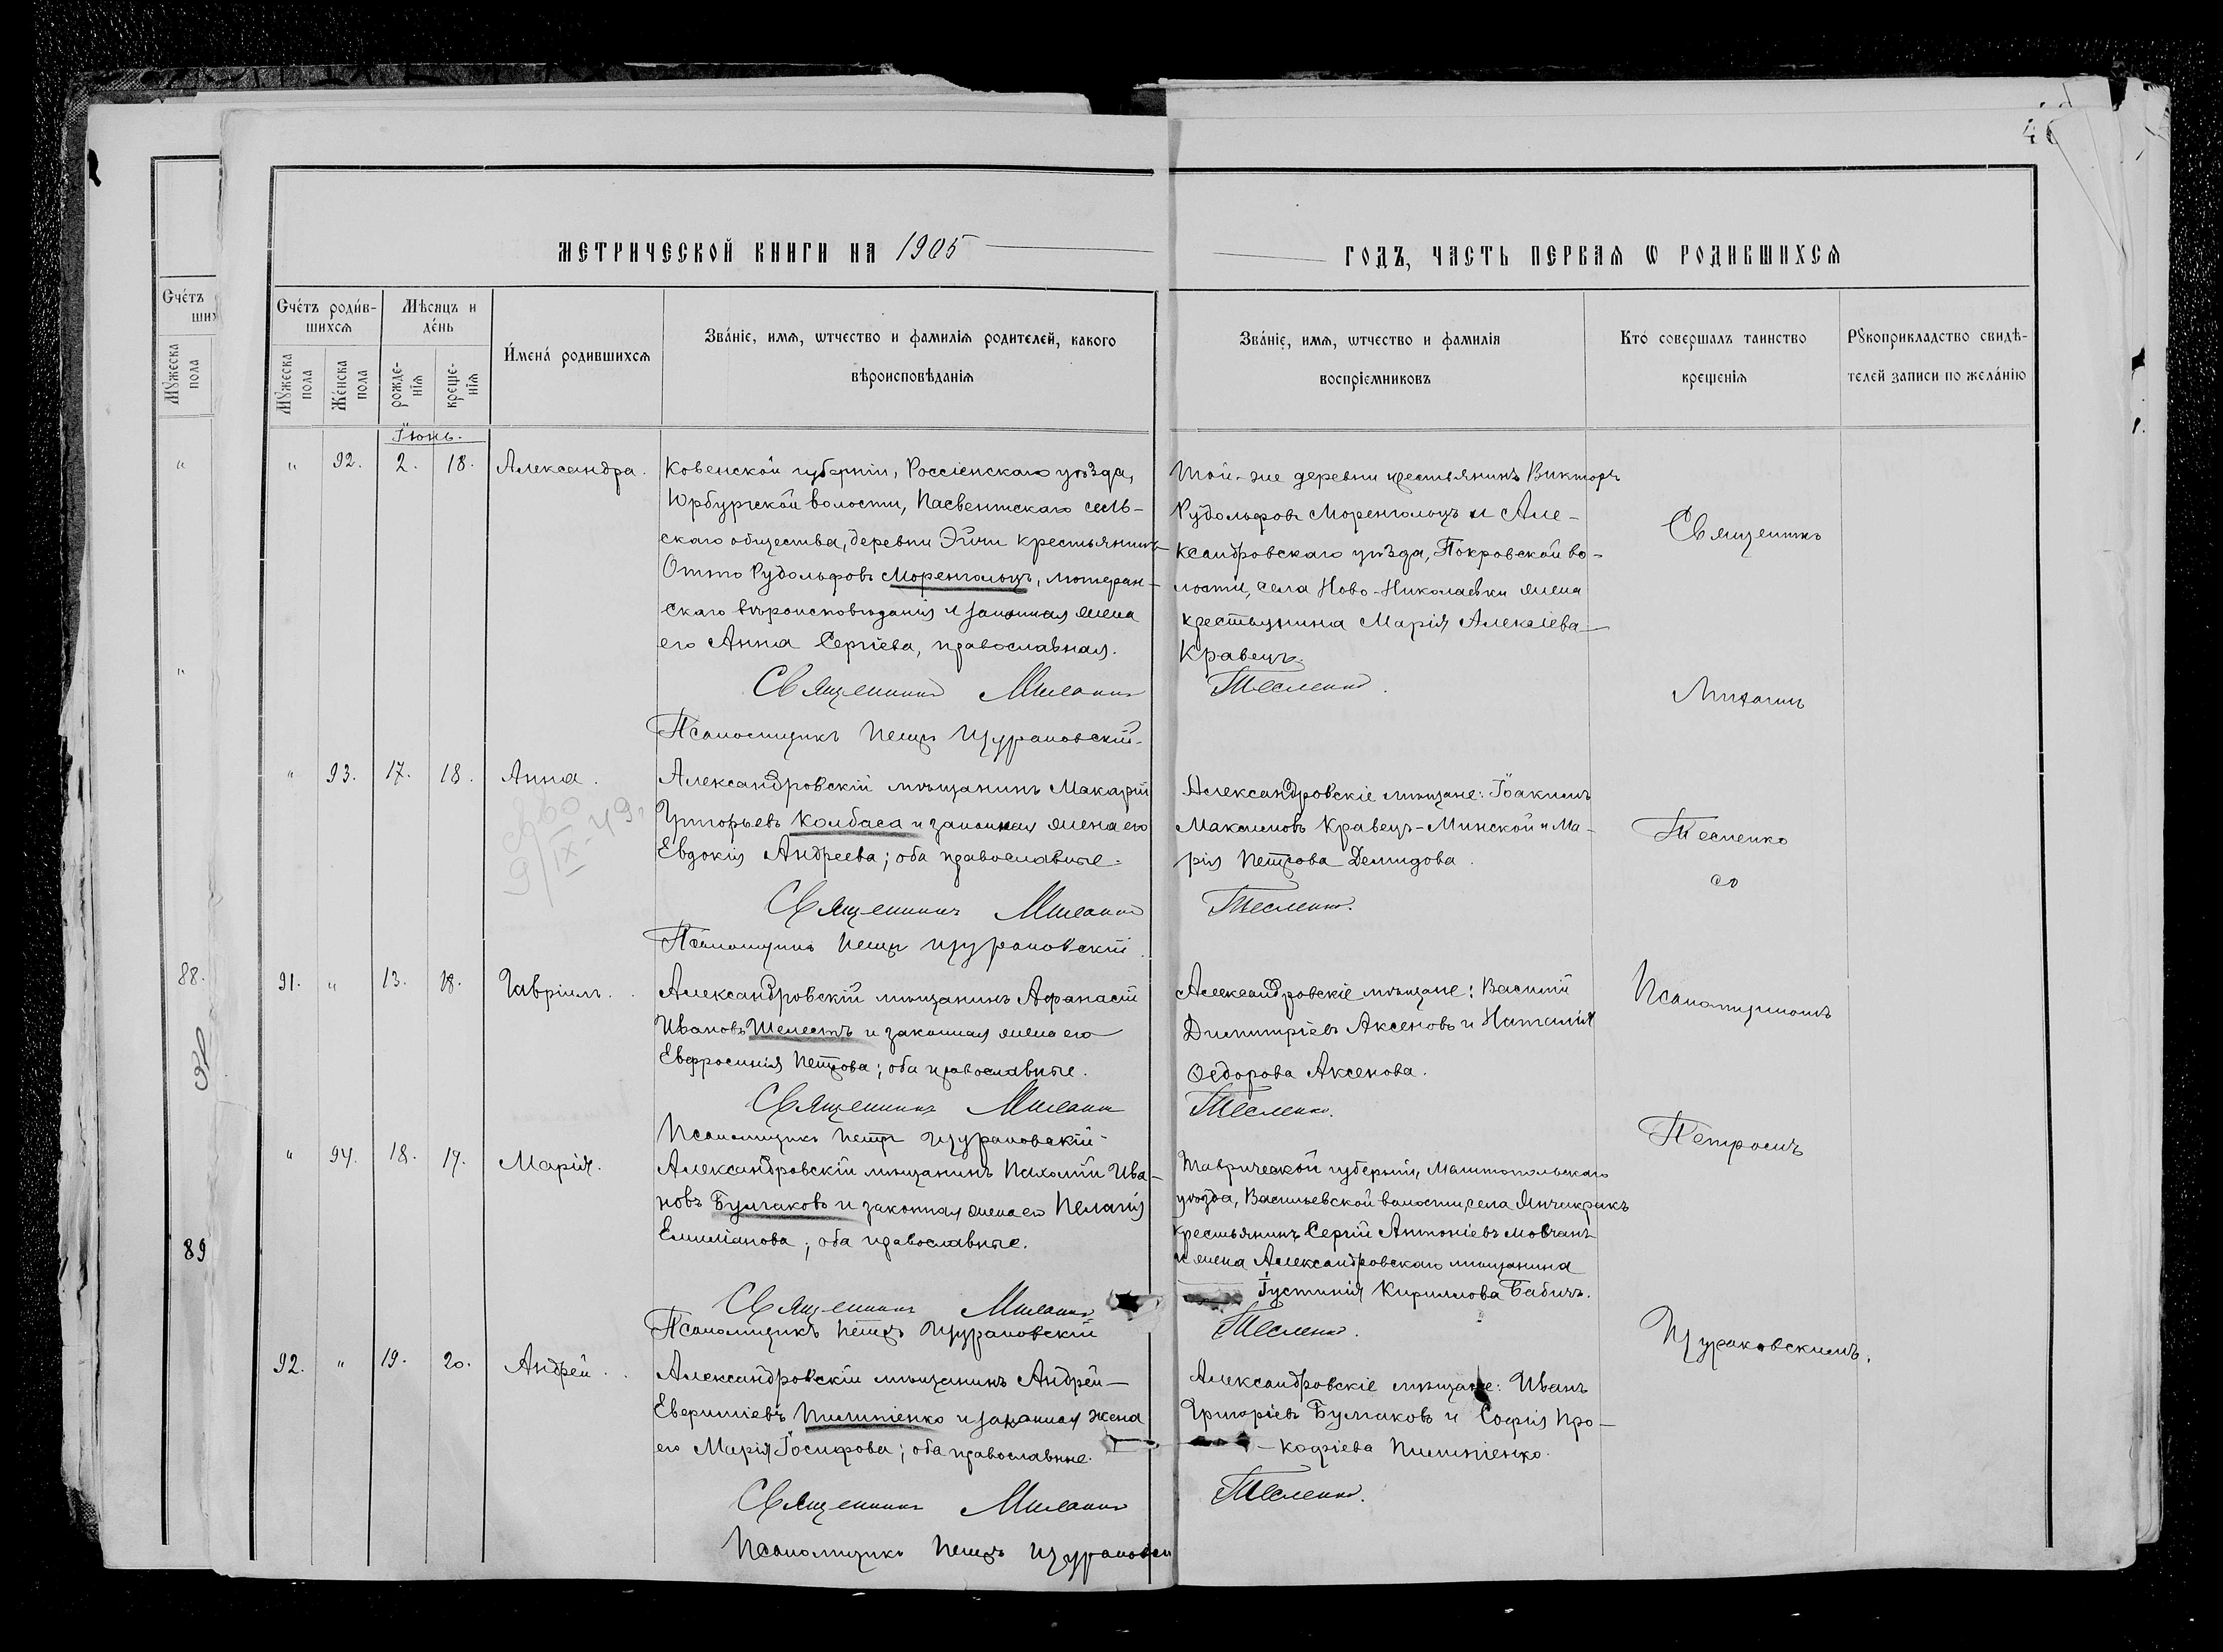 46
МЕТРИЧЕСКОЙ КНИГИ НА 1905
ГОДЪ, ЧАСТЬ ПЕРВАѦ Ѡ РОДИВШИХСѦ
Счетъ родив-
шихсѧ
Мѣсѧцъ и
день
Имена родившихсѧ
Званіе, имѧ, ѡтчество и фамиліѧ родителей, какого
вѣроисповѣданіѧ
Званіе, имѧ, ѡтчество и фамиліѧ
воспріемниковъ
Кто совершалъ таинство
крещеніѧ
Рꙋкоприкладство свидѣ-
телей записи по желанію
Мꙋжеска
пола
Женска
пола
рожде-
ніѧ
креще-
ніѧ
Счетъ
ших
Мꙋжеска
пола
Іюнь.
" 92. 2. 18. Александра.
Ковенской губерніи, Россіенскаго уѣзда,
Юрбургской волости, Пасвентскаго сель-
скаго общества, деревни Эйчи крестьянинъ
Отто Рудольфовъ Моренгольцъ, лютеран-
скаго вѣроисповѣданія и законная жена
его Анна Сергіева, православная.
Священникъ Михаилъ
Псаломщикъ Петръ Щураковскій.
Той-же деревни крестьянинъ Викторъ
Рудольфовъ Моренгольцъ и Але-
ксандровскаго уѣзда, Покровской во-
лости, села Ново-Николаевки жена
крестьянина Марія Алексіева
Кравецъ.
Тесленко.
" 93. 17. 18. Анна.
9/IX-49.
Александровскій мѣщанинъ Макарій
Григорьевъ Колбаса и законная жена его
Евдокія Андреева; оба православные.
Священникъ Михаилъ
Псаломщикъ Петръ Щураковскій.
Александровскіе мѣщане: Іоакимъ
Максимовъ Кравецъ-Минской и Ма-
рія Петрова Демидова.
Тесленко.
91. " 13. 18. Гавріилъ.
Александровскій мѣщанинъ Афанасій
Ивановъ Шелестъ и законная жена его
Евфросинія Петрова; оба православные.
Священникъ Михаилъ
Псаломщикъ Петръ Щураковскій.
Александровскіе мѣщане: Василій
Димитріевъ Аксеновъ и Наталія
Ѳедорова Аксенова.
Тесленко.
" 94. 18. 19. Марія.
Александровскій мѣщанинъ Пахомій Ива-
новъ Булгаковъ и законная жена его Пелагія
Емиліанова; оба православные.
Священникъ Михаилъ
Псаломщикъ Петръ Щураковскій
Таврической губерніи, Мелитопольскаго
уѣзда, Васильевской волости, села Янчикракъ
крестьянинъ Сергій Антоніевъ Мовчанъ
и жена Александровскаго мѣщанина
Іустинія Кириллова Бабичъ.
Тесленко.
92. " 19. 20. Андрей.
Александровскій мѣщанинъ Андрей
Пилипенко и законная жена
его Марія Іосифова; оба православные.
Священникъ Михаилъ
Псаломщикъ Петръ Щураковскій
Александровскіе мѣщане: Иванъ
Григоріевъ Булгаковъ и Софія Про-
кофіева Пилипенко.
Тесленко.
Священникъ
Михаилъ
Тесленко
со
Псаломщикомъ
Петромъ
Щураковскимъ.
88.
89